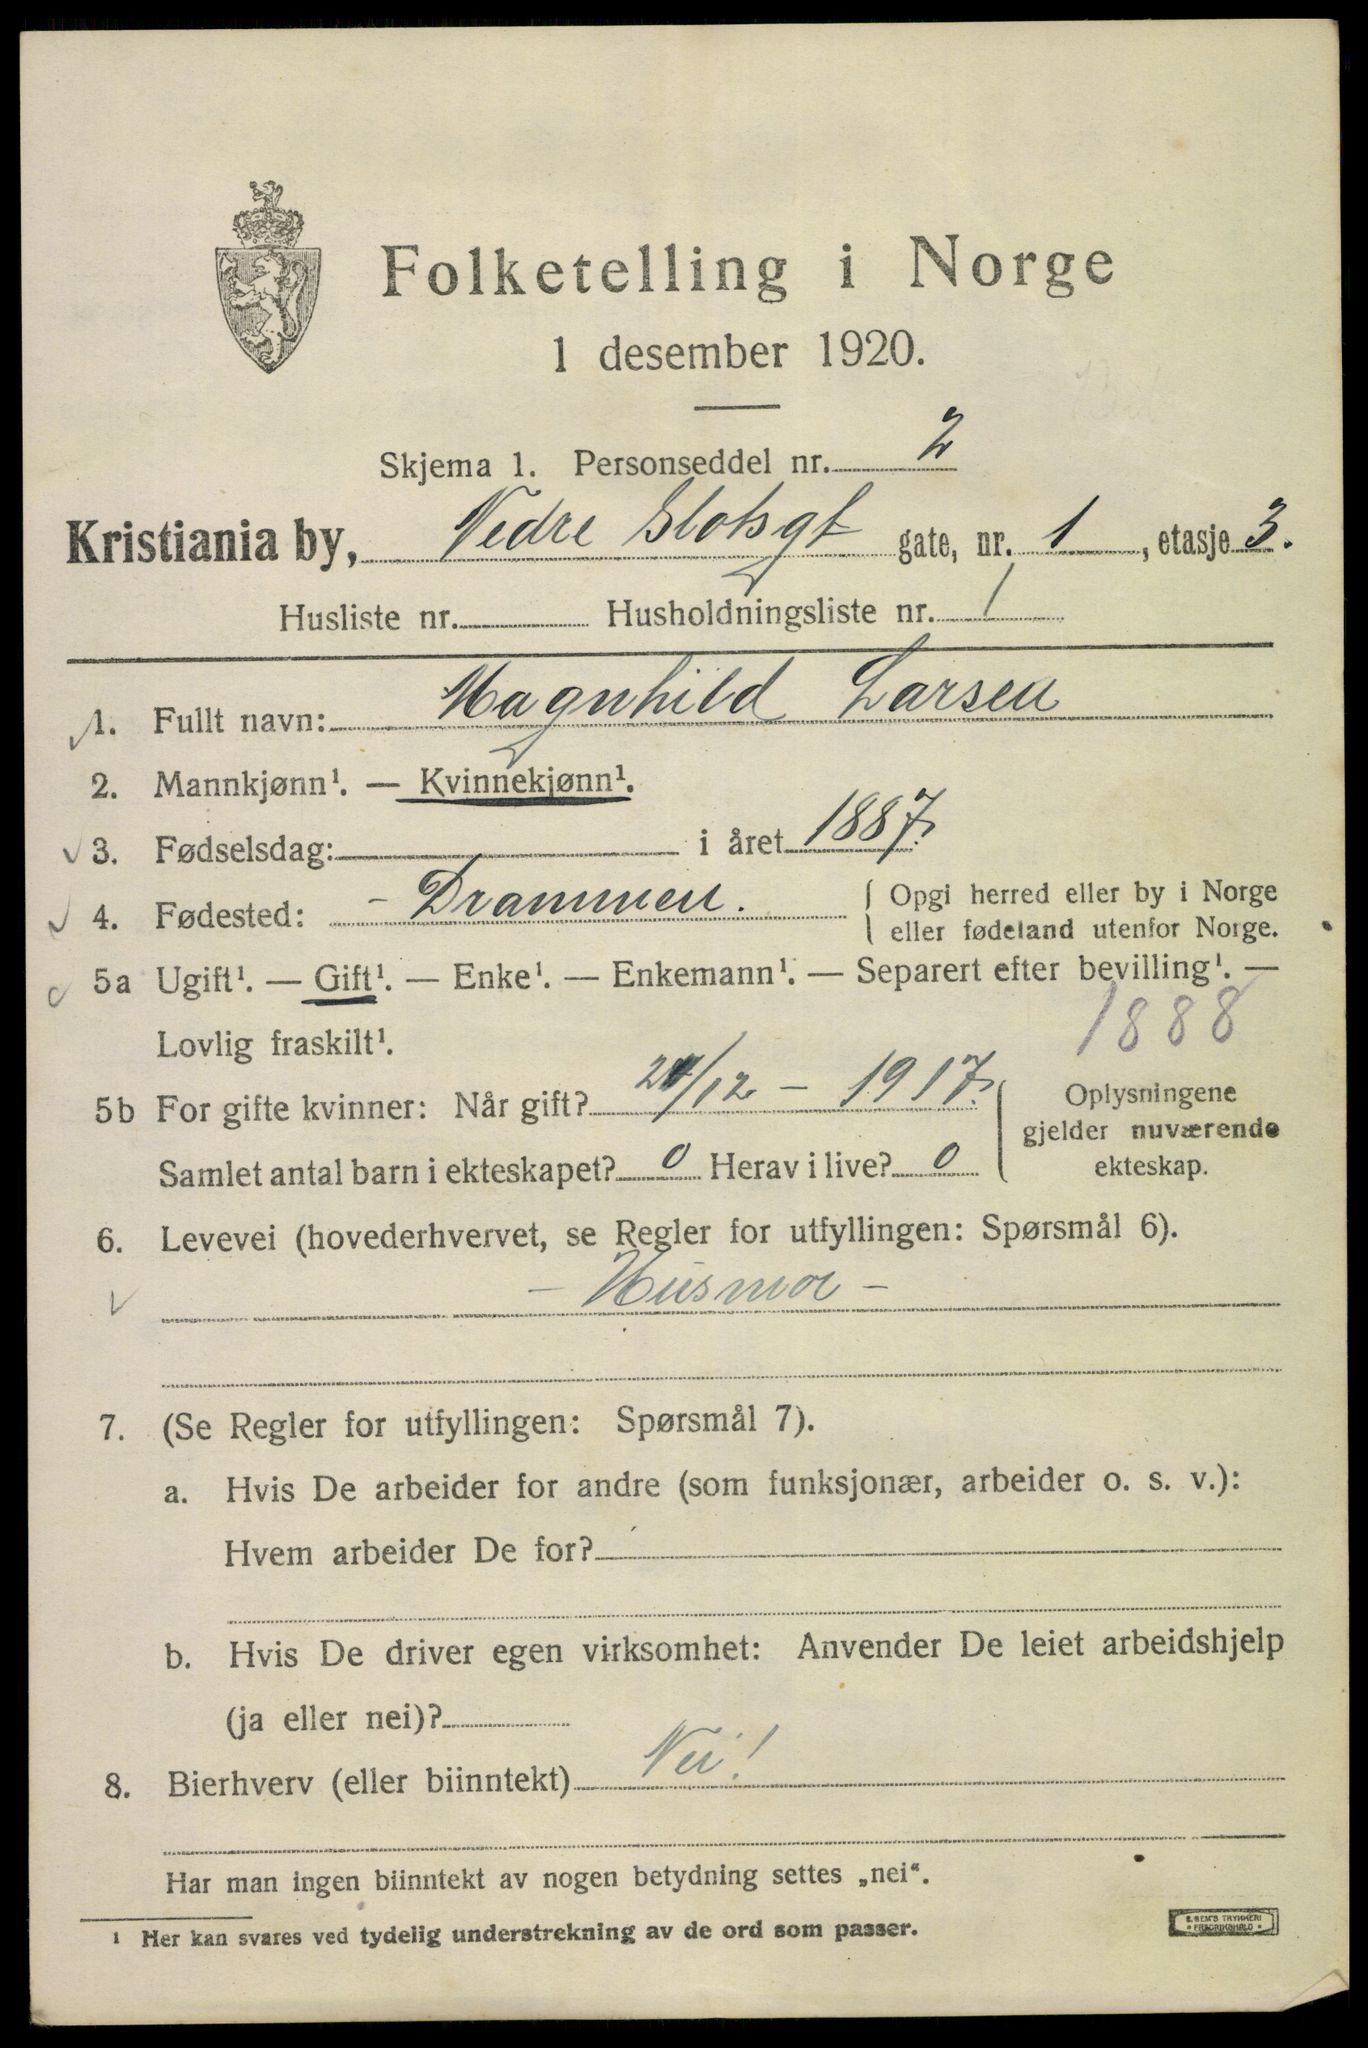 Folketelling i Norge
1 desember 1920.
Skjema 1. Personseddel nr. 2
Kristiania by, Nedre Slotsgt gate, nr. 1, etasje 3.
Husliste nr. Husholdningsliste nr. 1
1. Fullt navn: Magnhild Larsen
2. Mannkjønn¹. — Kvinnekjønn¹.
3. Fødselsdag: i året 1887.
4. Fødested: - Drammen. Opgi herred eller by i Norge
eller fødeland utenfor Norge.
5a Ugift¹. — Gift¹. — Enke¹. — Enkemann¹. — Separert efter bevilling¹. —
Lovlig fraskilt¹. 1888
5b For gifte kvinner: Når gift? /12 - 1917. Oplysningene
gjelder nuværende
ekteskap.
Samlet antal barn i ekteskapet? 0 Herav i live? 0
6. Levevei (hovederhvervet, se Regler for utfyllingen: Spørsmål 6).
- Husmor -
7. (Se Regler for utfyllingen: Spørsmål 7).
a. Hvis De arbeider for andre (som funksjonær, arbeider o. s. v.):
Hvem arbeider De for?
b. Hvis De driver egen virksomhet: Anvender De leiet arbeidshjelp
(ja eller nei)?
8. Bierhverv (eller biinntekt) Nei!
Har man ingen biinntekt av nogen betydning settes „nei“.
¹ Her kan svares ved tydelig understrekning av de ord som passer.
E. SEM'S TRYKKERI
FREDRIKSHALD